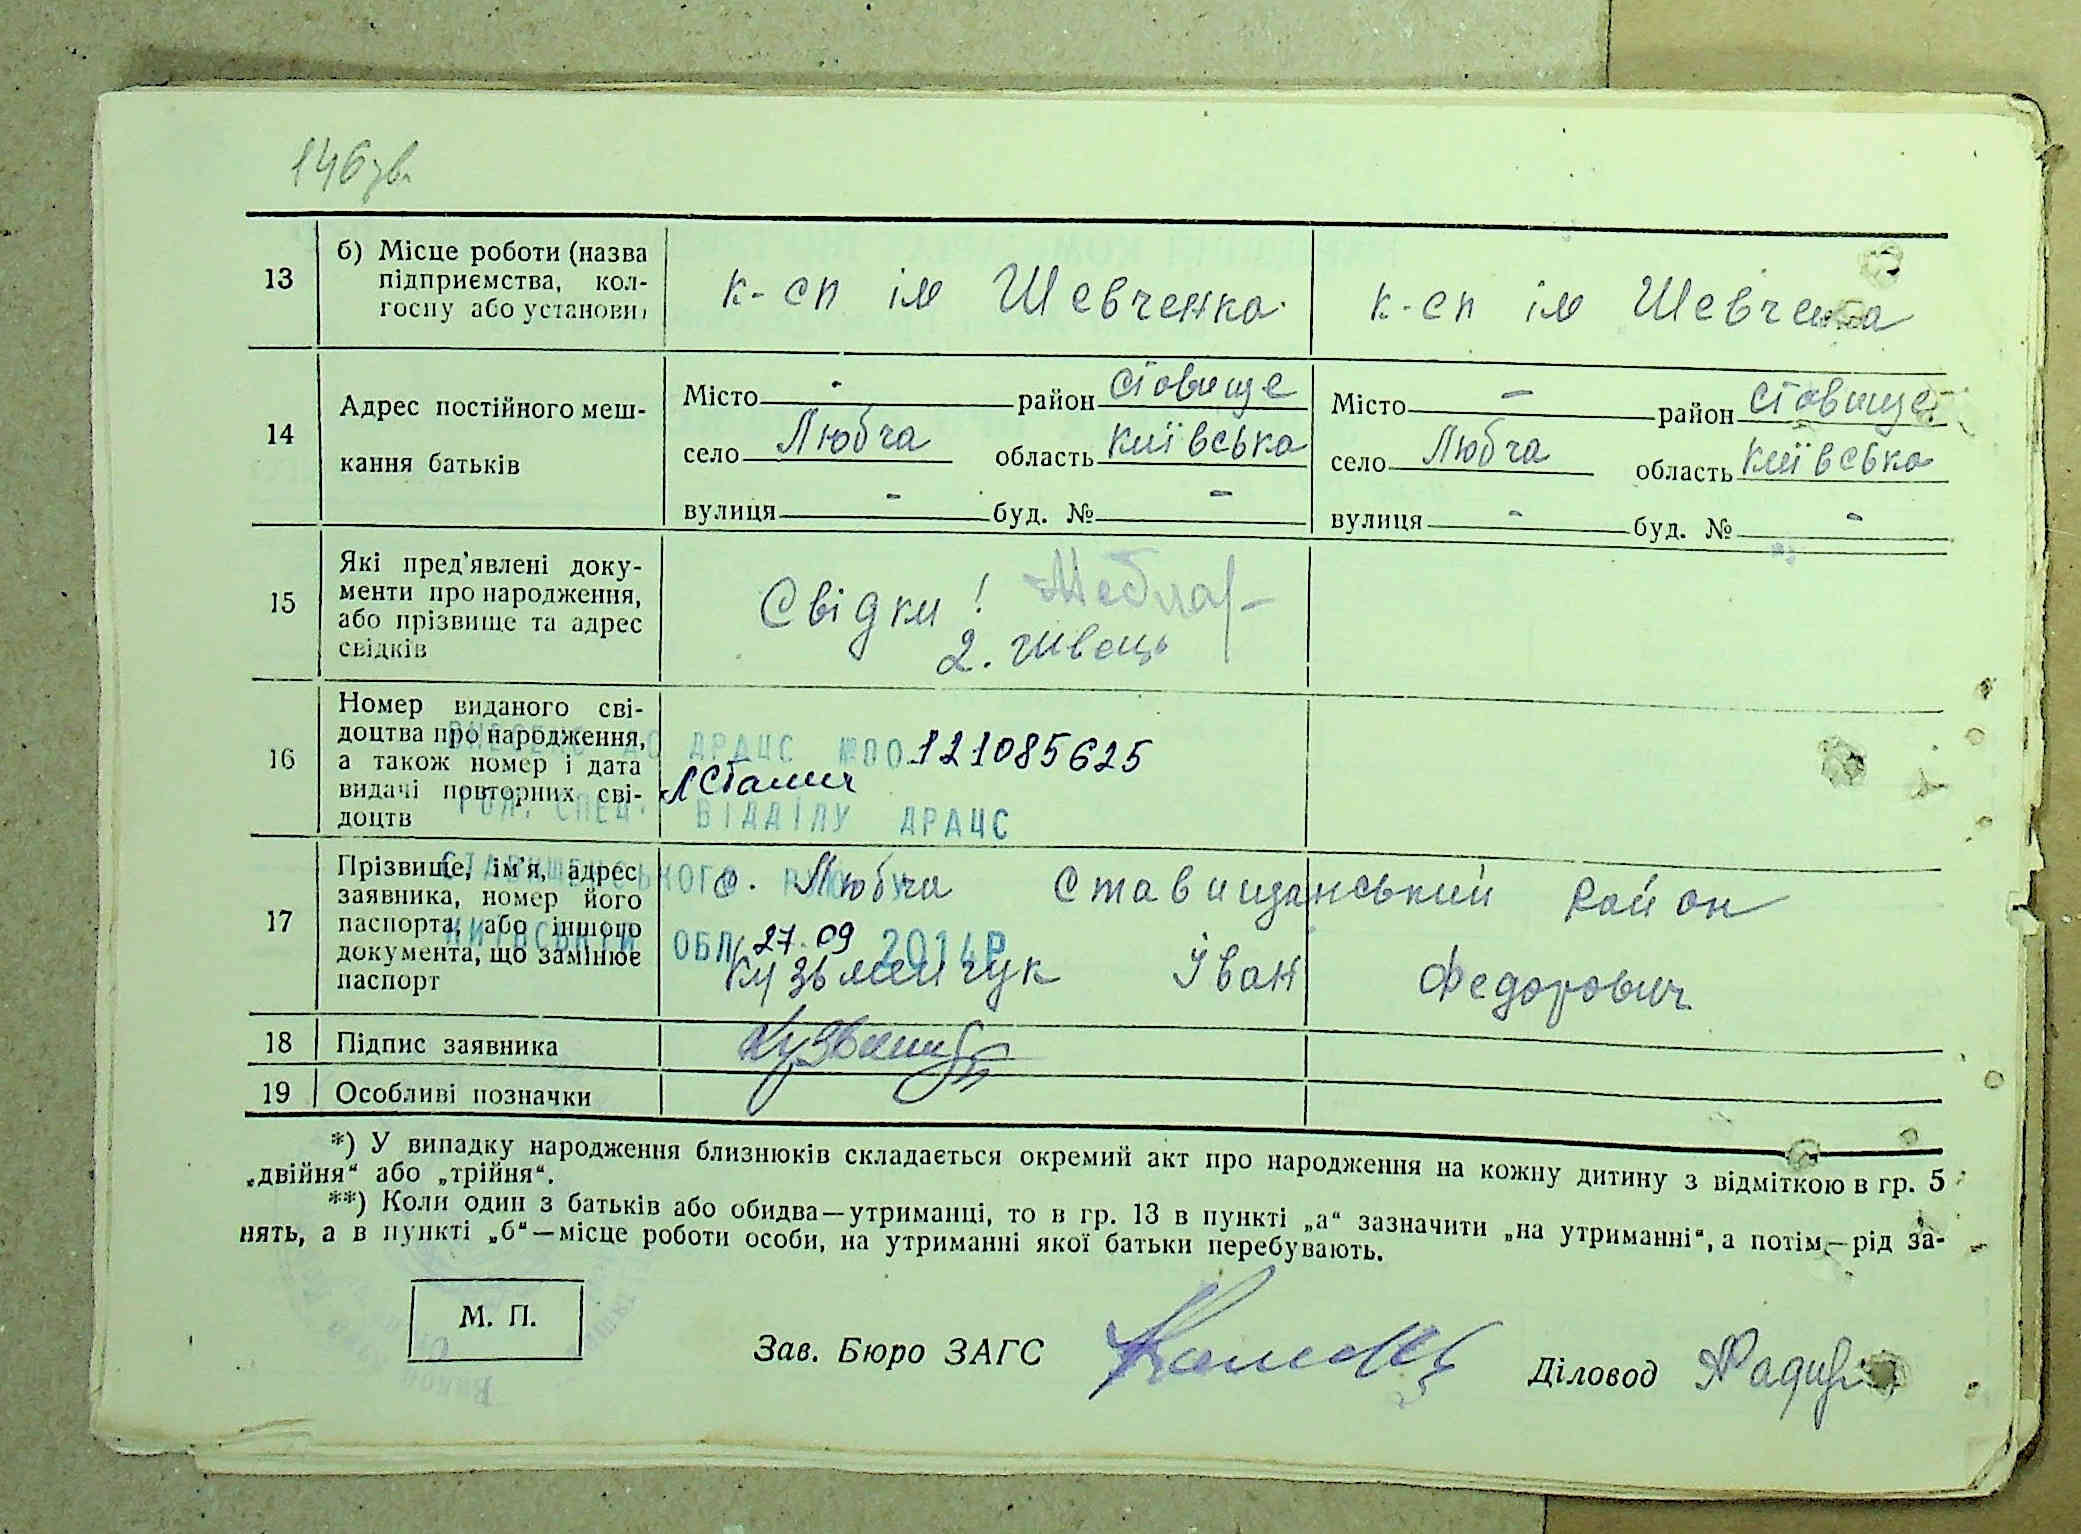 146 зв.
13
б) Місце роботи (назва
підприємства, кол-
госпу або установи)
к-сп ім Шевченка
к-сп ім Шевченка
14
Адрес постійного меш-
кання батьків
Місто - район Ставище
село Любча область Київська
вулиця - буд. № -
Місто - район Ставище
село Любча область Київська
вулиця - буд. № -
15
Які пред'явлені доку-
менти про народження,
або прізвище та адрес
свідків
Свідки!
2. Швець
16
Номер виданого сві-
доцтва про народження,
а також номер і дата
видачі повторних сві-
доцтв
ВНЕСЕНО ДО ДРАЦС №00121085625
ГОЛ. СПЕЦ. ВІДДІЛУ ДРАЦС
СТАВИЩЕНСЬКОГО
КИЇВСЬКІЙ ОБЛ. 27.09 2014Р
17
Прізвище, ім'я, адрес
заявника, номер його
паспорта, або іншого
документа, що замінює
паспорт
с. Любча Ставищанський район
Кузьмінчук Іван Федорович
18
Підпис заявника
19
Особливі позначки
*) У випадку народження близнюків складається окремий акт про народження на кожну дитину з відміткою в гр. 5
„двійня“ або „трійня“.
**) Коли один з батьків або обидва—утриманці, то в гр. 13 в пункті „а“ зазначити „на утриманні“, а потім—рід за-
нять, а в пункті „б“—місце роботи особи, на утриманні якої батьки перебувають.
М. П.
Зав. Бюро ЗАГС
Діловод